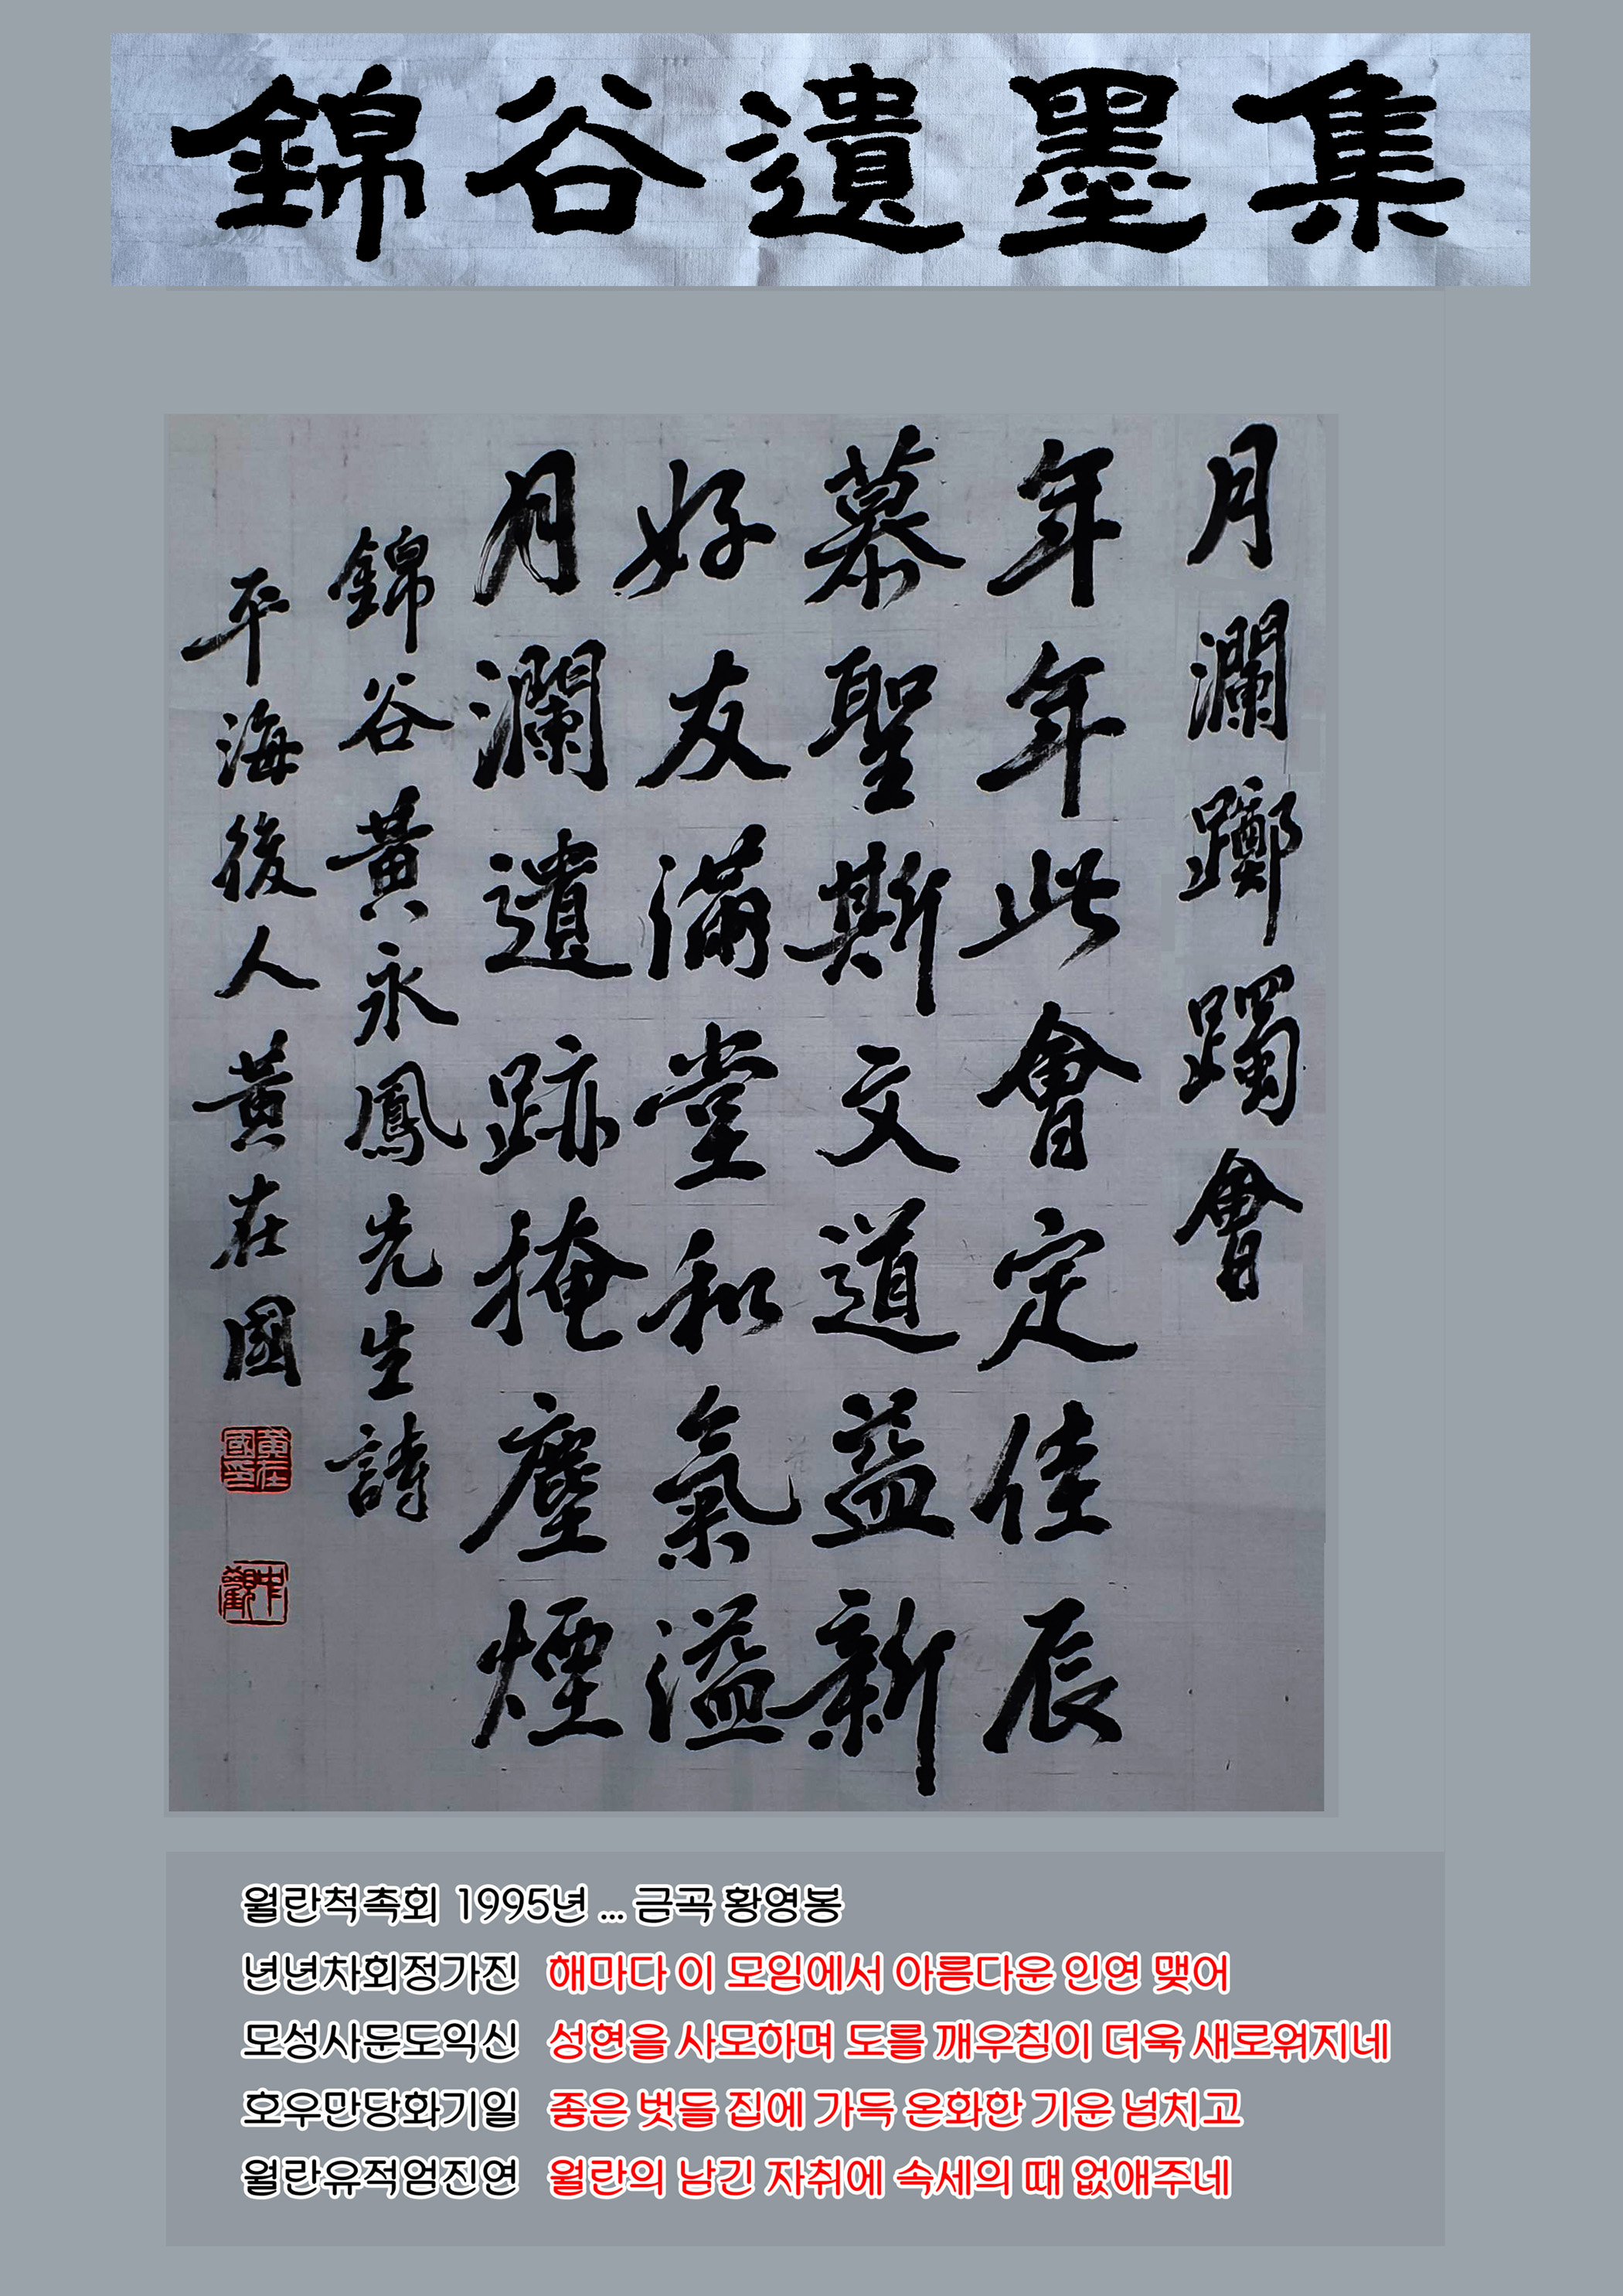 錦谷遺墨集
月瀾躑躅會
年年此會定佳辰
慕聖斯文道益新
好友滿堂和氣溢
月瀾遺跡掩塵煙
錦谷黃永鳳先生詩
平海後人黃在國
黃在國印
월란척촉회 1995년 ... 금곡 황영봉
년년차회정가진 해마다 이 모임에서 아름다운 인연 맺어
모성사문도익신 성현을 사모하며 도를 깨우침이 더욱 새로워지네
호우만당화기일 좋은 벗들 집에 가득 온화한 기운 넘치고
월란유적엄진연 월란의 남긴 자취에 속세의 때 없애주네